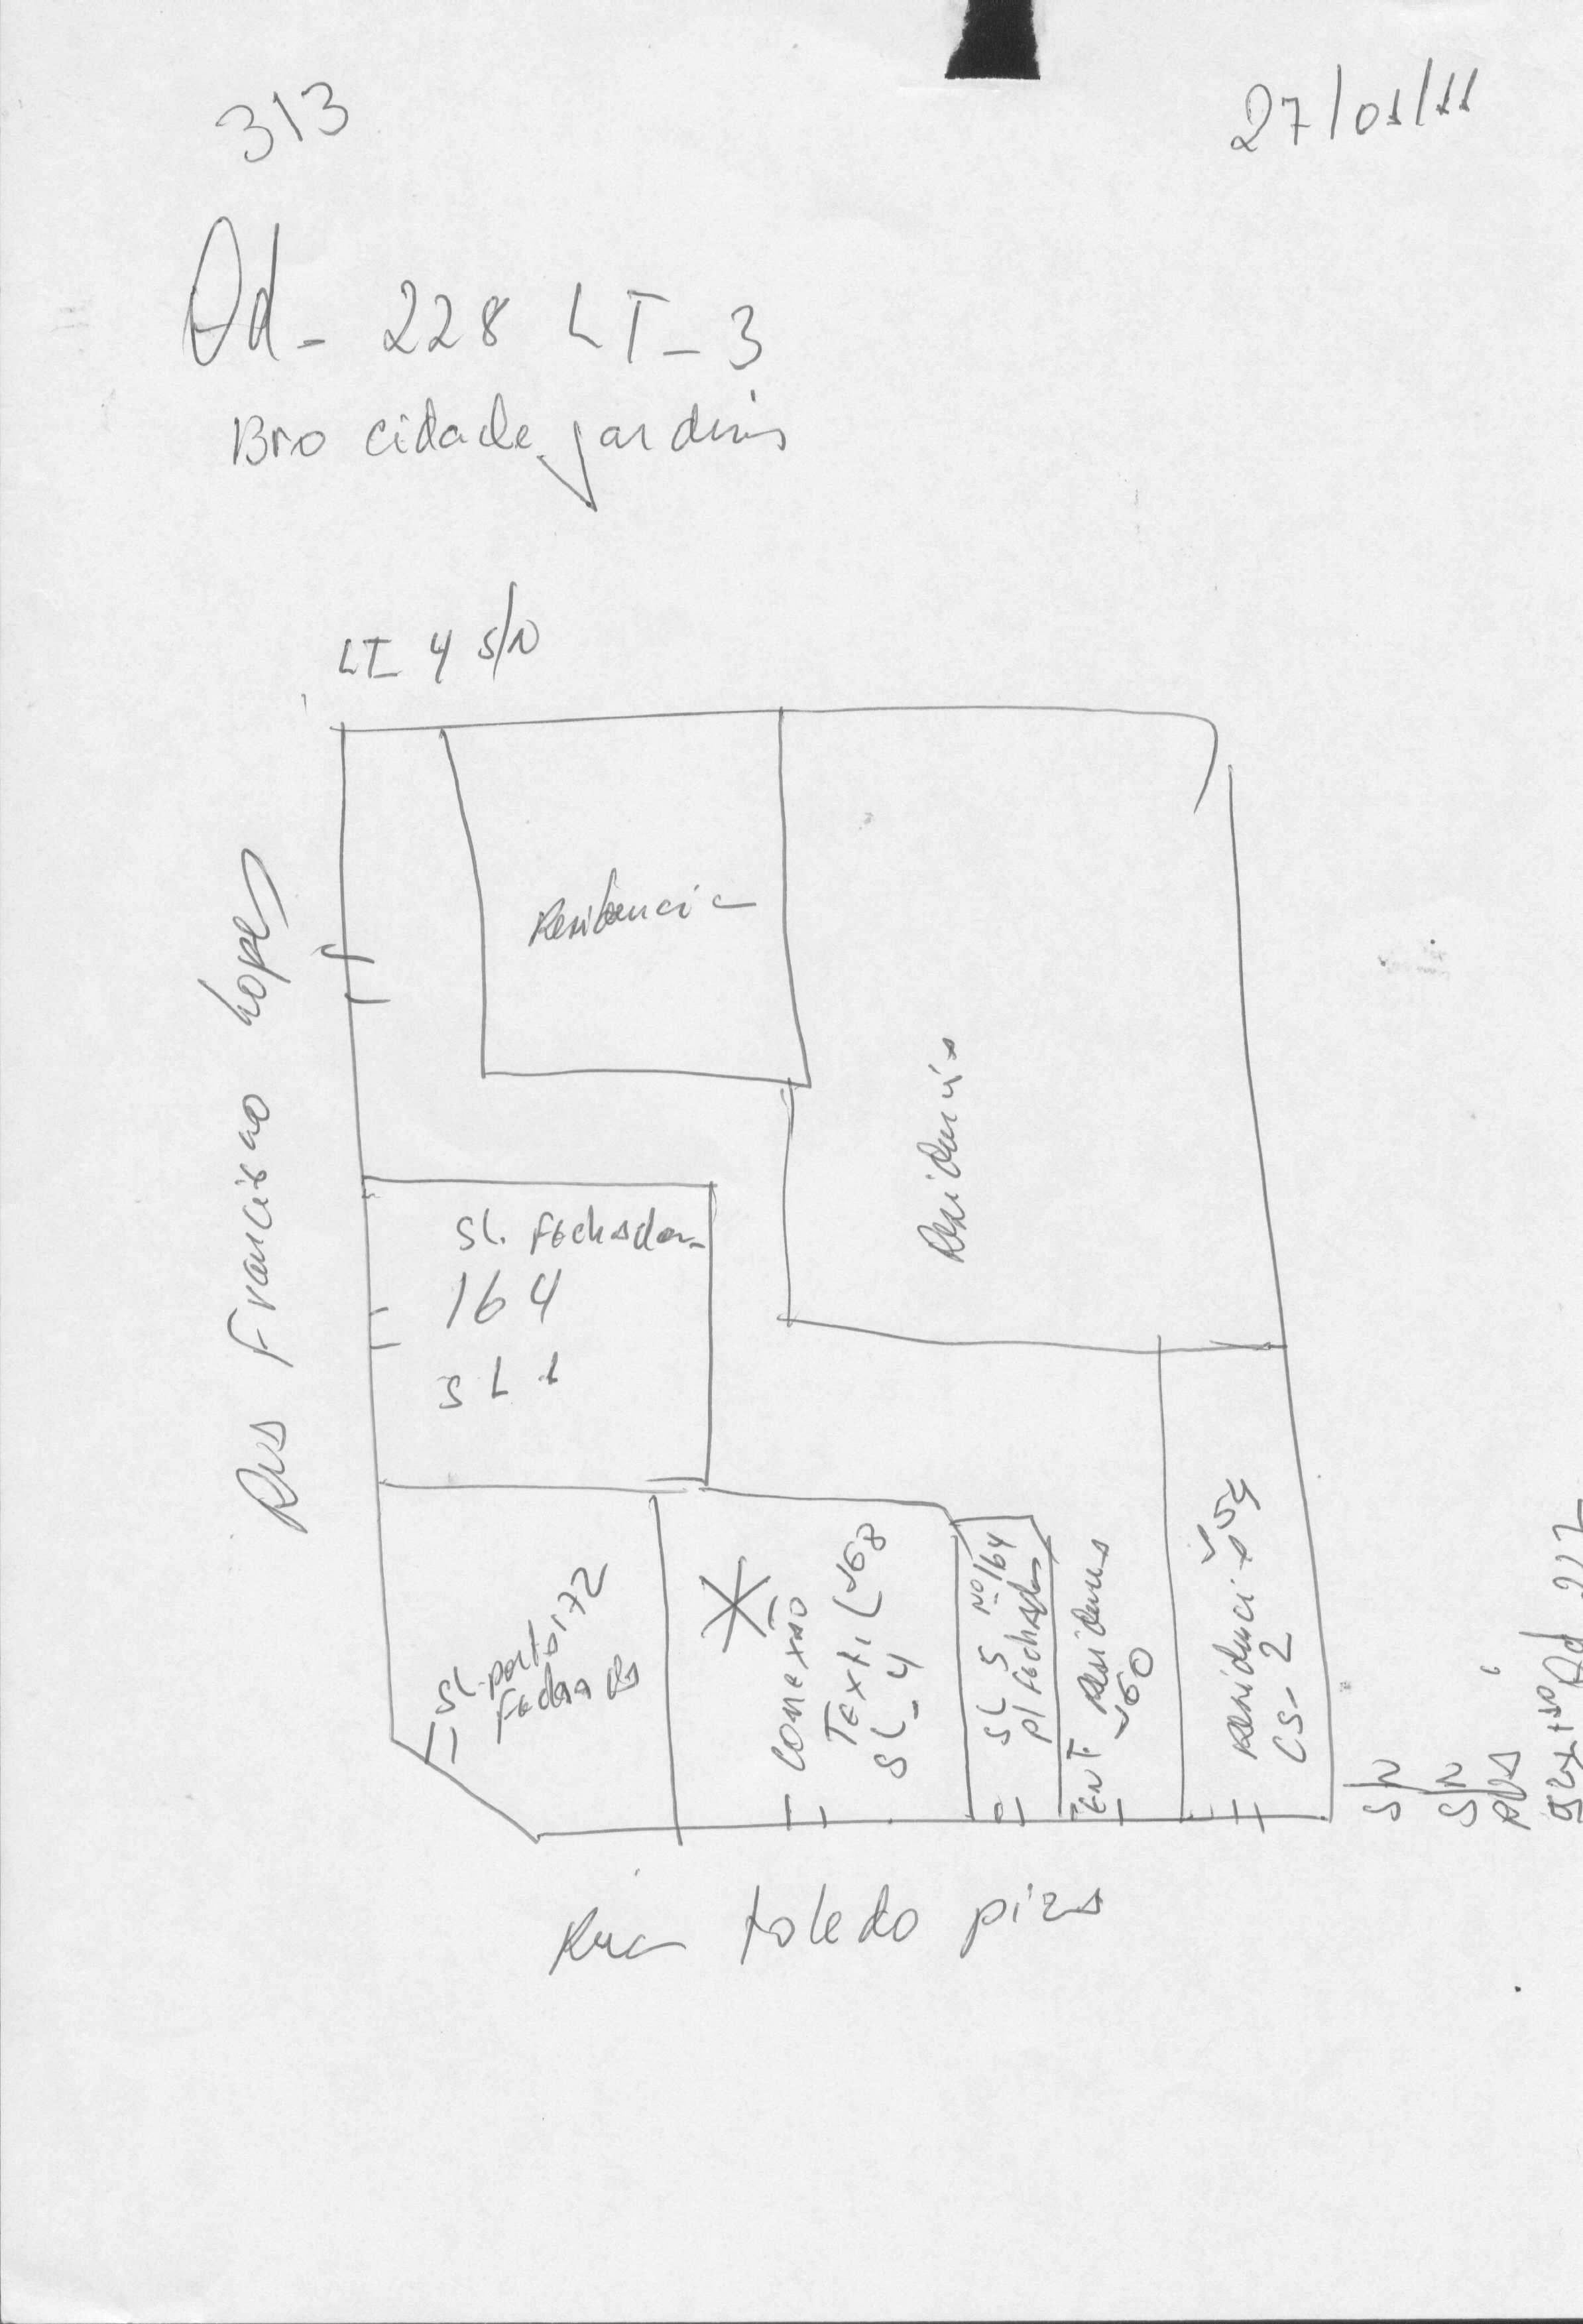 313
27/01/11
Qd- 228 LT-3
Bro cidade jardins
LT 4 S/N
Residencia
Rua Francisco Lopes
Residencia
SL. Fechada
164
SL 1
SL porta 172
Fechada
Conexão
Textil 168
SL-4
SL 5 Nº 164
p/ Fechada
ENT. Residencia
160
Residencia 154
CS-2
S/N
S/N
Rua
Qd 217
Rua toledo piza